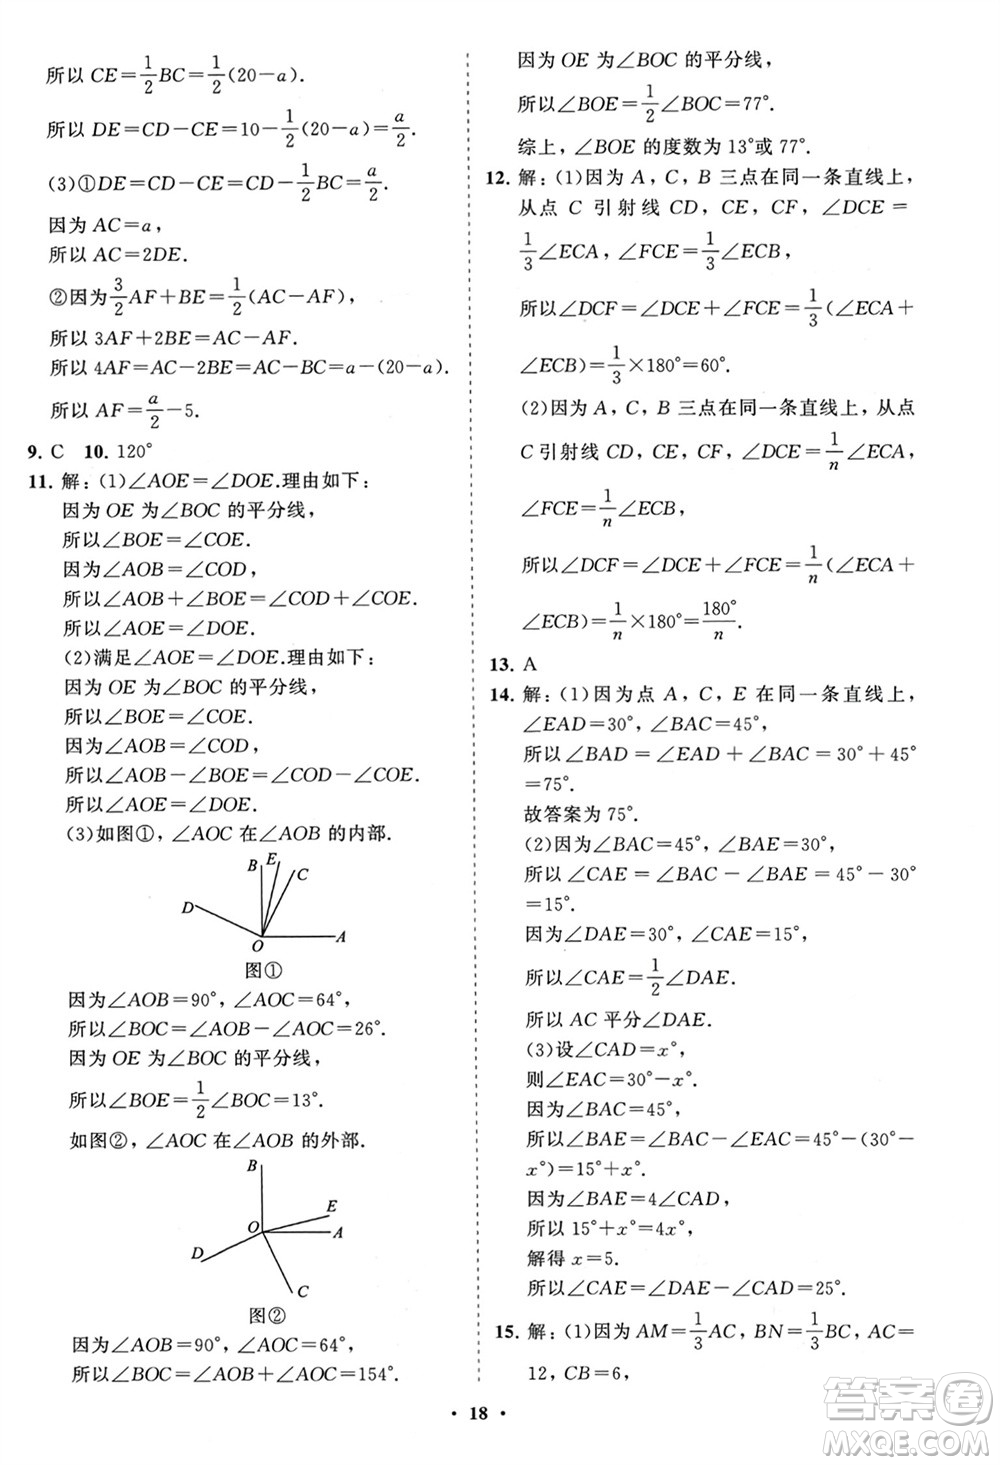 所以 CE=1/2BC=1/2(20-a).
所以 DE=CD-CE=10-1/2(20-a)=a/2.
(3)①DE=CD-CE=1/2AB-1/2BC=a/2.
因为 AC=a,
所以 AC=2DE.
②因为3/2AF+BE=1/2(AC-AF),
所以 3AF+2BE=AC-AF.
所以 4AF=AC-2BE=AC-BC=a-(20-a).
所以 AF=a/2-5.
9. C 10. 120°
11. 解:(1)∠AOE=∠DOE.理由如下:
因为 OE 为∠BOC 的平分线,
所以∠BOE=∠COE.
因为∠AOB=∠COD,
所以∠AOB+∠BOE=∠COD+∠COE.
所以∠AOE=∠DOE.
(2)满足∠AOE=∠DOE.理由如下:
因为 OE 为∠BOC 的平分线,
所以∠BOE=∠COE.
因为∠AOB=∠COD,
所以∠AOB-∠BOE=∠COD-∠COE.
所以∠AOE=∠DOE.
(3)如图①,∠AOC 在∠AOB 的内部.
B E C
D
O A
图①
因为∠AOB=90°,∠AOC=64°,
所以∠BOC=∠AOB-∠AOC=26°.
因为 OE 为∠BOC 的平分线,
所以∠BOE=1/2∠BOC=13°.
如图②,∠AOC 在∠AOB 的外部.
B
E
O A
D
C
图②
因为∠AOB=90°,∠AOC=64°,
所以∠BOC=∠AOB+∠AOC=154°.
因为 OE 为∠BOC 的平分线,
所以∠BOE=1/2∠BOC=77°.
综上,∠BOE 的度数为 13°或 77°.
12. 解:(1)因为 A,C,B 三点在同一条直线上,
从点 C 引射线 CD,CE,CF,∠DCE=
1/3∠ECA,∠FCE=1/3∠ECB,
所以∠DCF=∠DCE+∠FCE=1/3(∠ECA+
∠ECB)=1/3×180°=60°.
(2)因为 A,C,B 三点在同一条直线上,从点
C 引射线 CD,CE,CF,∠DCE=1/n∠ECA,
∠FCE=1/n∠ECB,
所以∠DCF=∠DCE+∠FCE=1/n(∠ECA+
∠ECB)=1/n×180°=180°/n.
13. A
14. 解:(1)因为点 A,C,E 在同一条直线上,
∠EAD=30°,∠BAC=45°,
所以∠BAD=∠EAD+∠BAC=30°+45°
=75°.
故答案为 75°.
(2)因为∠BAC=45°,∠BAE=30°,
所以∠CAE=∠BAC-∠BAE=45°-30°
=15°.
因为∠DAE=30°,∠CAE=15°,
所以∠CAE=1/2∠DAE.
所以 AC 平分∠DAE.
(3)设∠CAD=x°,
则∠EAC=30°-x°.
因为∠BAC=45°,
所以∠BAE=∠BAC-∠EAC=45°-(30°-
x°)=15°+x°.
因为∠BAE=4∠CAD,
所以 15°+x°=4x°,
解得 x=5.
所以∠CAE=∠DAE-∠CAD=25°.
15. 解:(1)因为 AM=1/3AC,BN=1/3BC,AC=
12,CB=6,
· 18 ·
答案圈
MXQE.COM